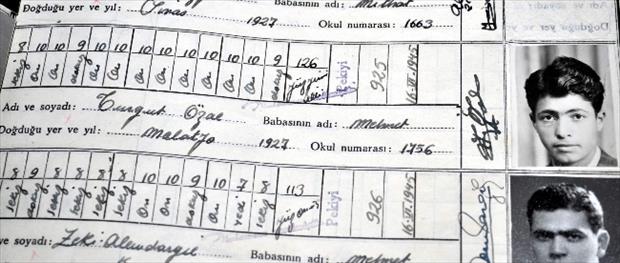 Doğduğu yer ve yıl: Sivas 1927
Babasının adı: Mithat
Okul numarası: 1663
8 10 10 9 10 10 10 10 10 10 10 9 126
sekiz On On dokuz On On On On On On On dokuz
Pekiyi 925 16-VI-1945
Adı ve soyadı: Turgut Özal
Babasının adı: Mehmet
Doğduğu yer ve yıl: Malatya 1927
Okul numarası: 1756
8 9 8 8 8 8 10 10 9 10 7 8 113
sekiz dokuz sekiz sekiz sekiz sekiz On On dokuz On yedi sekiz
Pekiyi 926 16-VI-1945
ve soyadı: Zeki
Babasının adı: Mehmet
Adı ve soyadı:
Doğduğu yer